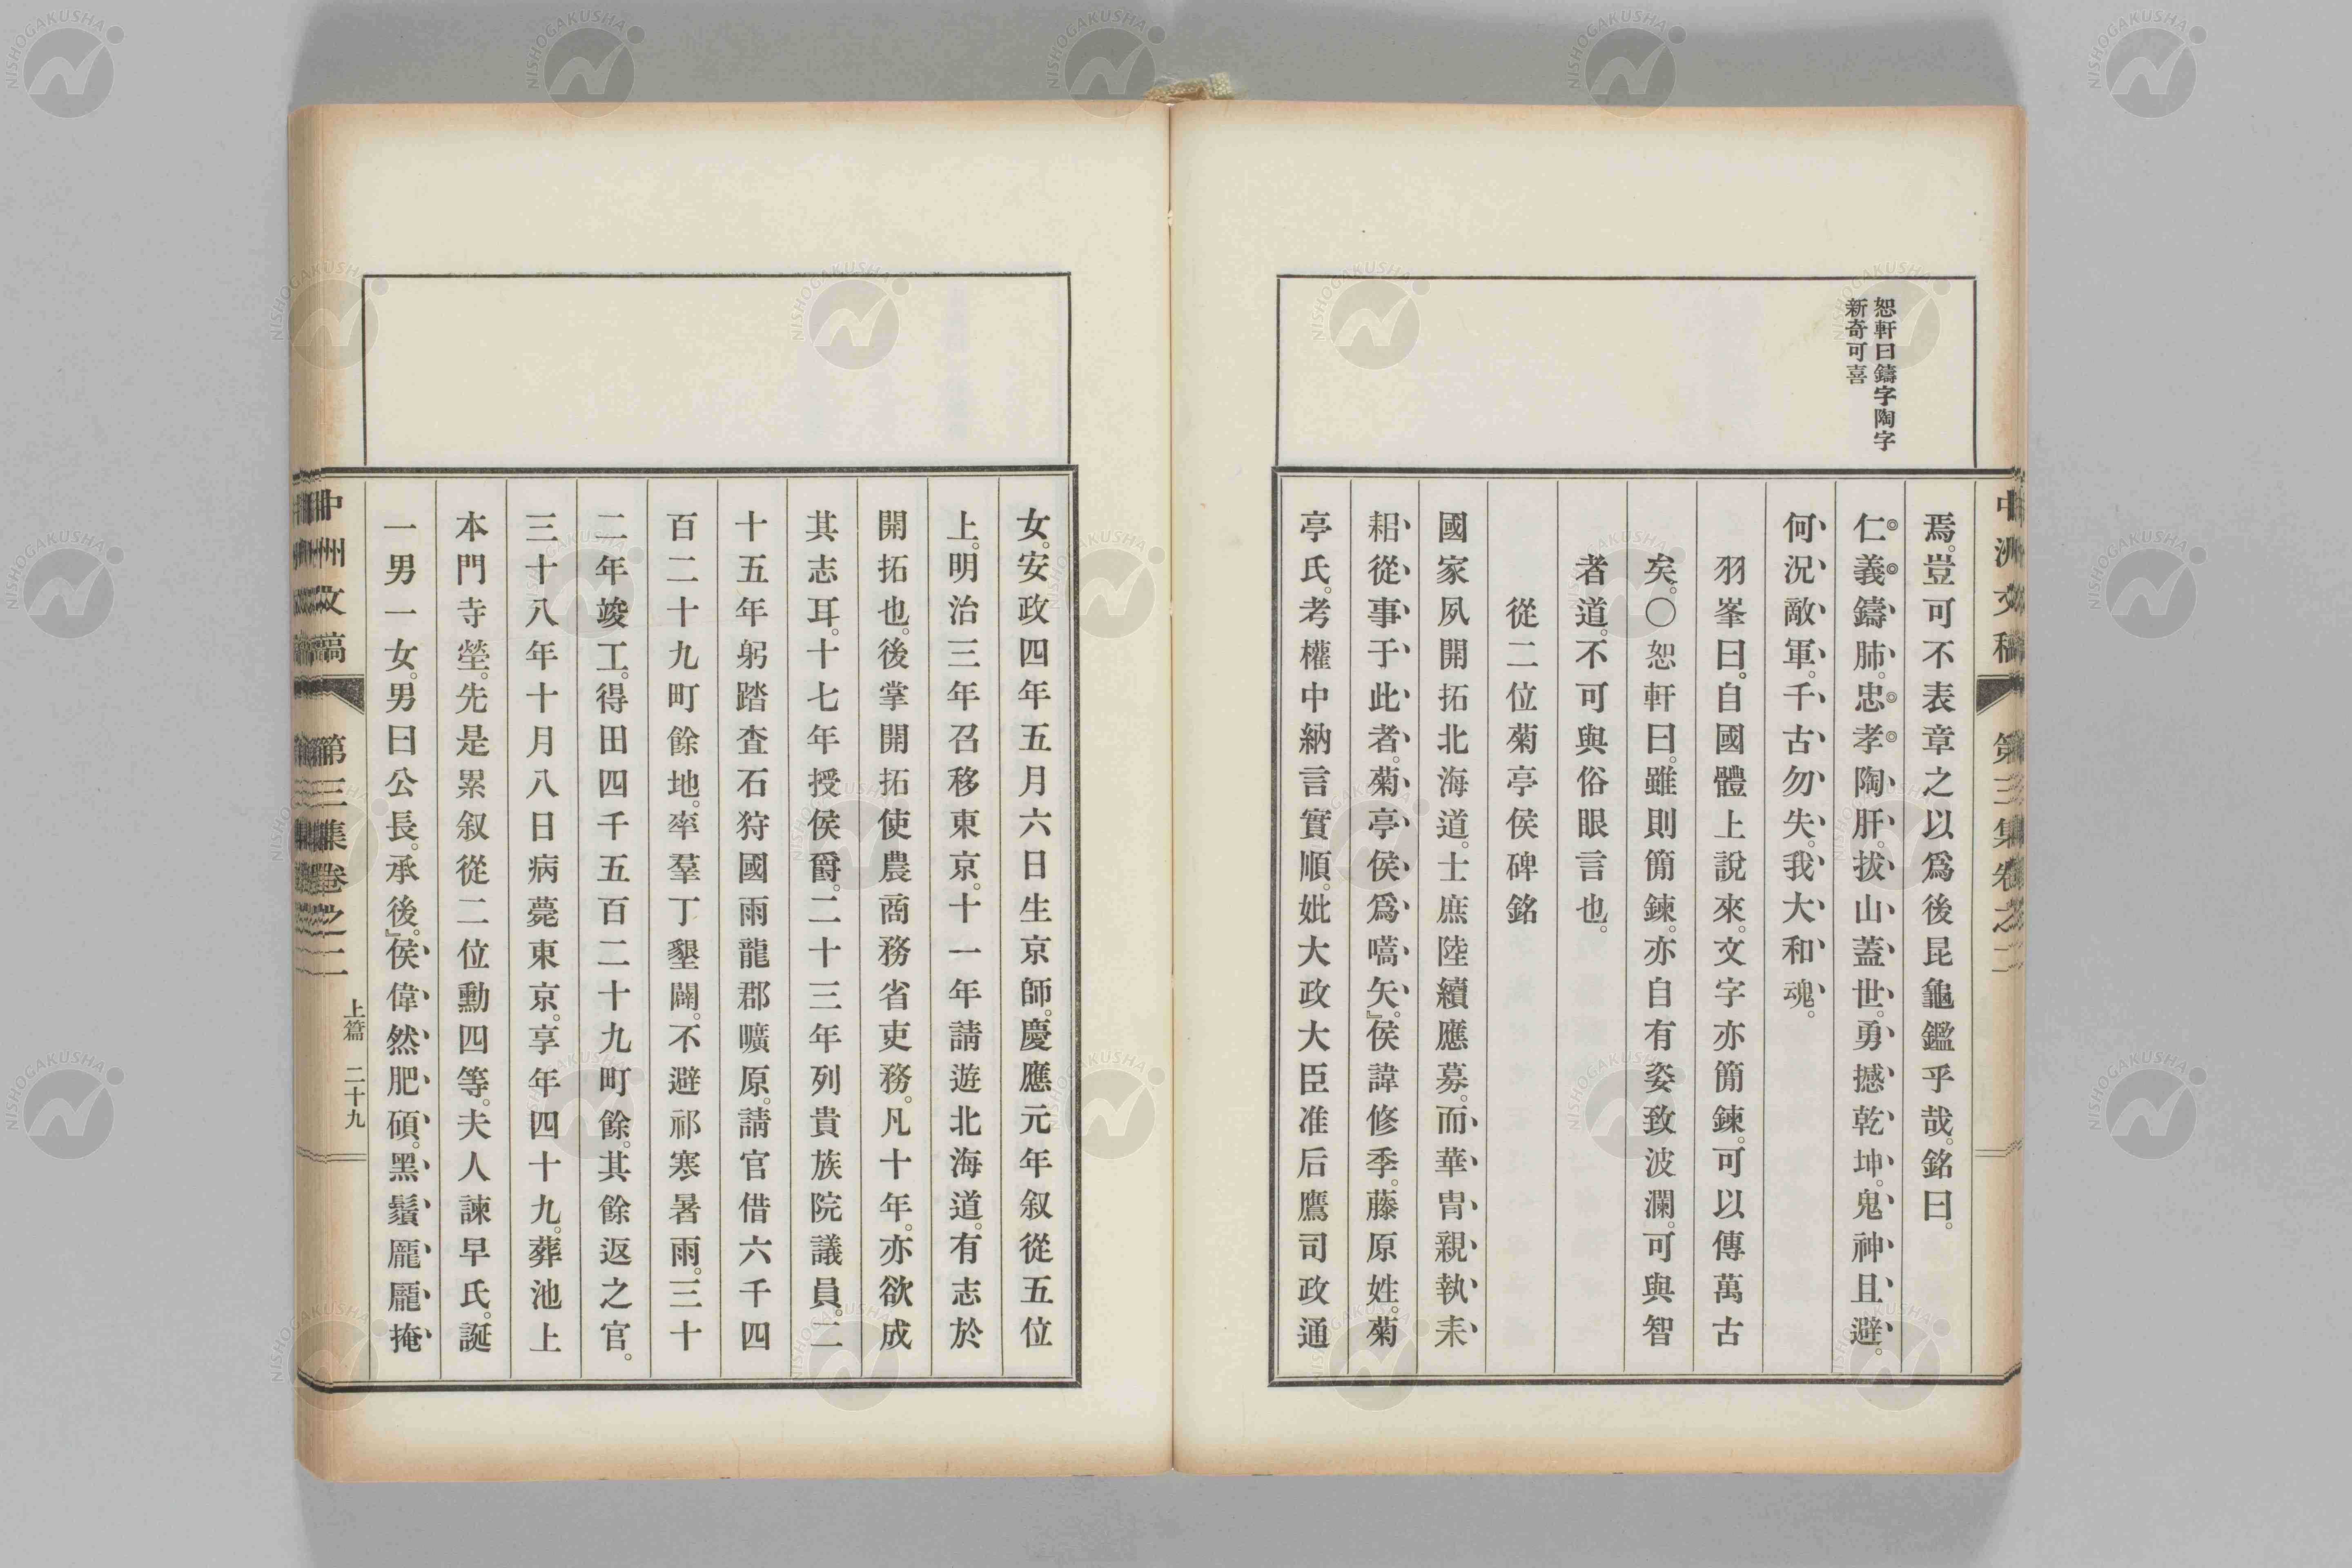 恕軒曰鑄字陶字
新奇可喜
中洲文稿 第三集卷之二
焉。豈可不表章之以爲後昆龜鑑乎哉。銘曰。
仁義鑄肺。忠孝陶肝。拔山蓋世。勇撼乾坤。鬼神且避。
何況敵軍。千古勿失。我大和魂。
羽峯曰。自國體上說來。文字亦簡鍊。可以傳萬古
矣。〇恕軒曰。雖則簡鍊。亦自有姿致波瀾。可與智
者道。不可與俗眼言也。
從二位菊亭侯碑銘
國家夙開拓北海道。士庶陸續應募。而華冑親執耒
耜從事于此者。菊亭侯爲嚆矢。』侯諱修季。藤原姓。菊
亭氏。考權中納言實順。妣大政大臣准后鷹司政通
女。安政四年五月六日生京師。慶應元年叙從五位
上。明治三年召移東京。十一年請遊北海道。有志於
開拓也。後掌開拓使農商務省吏務。凡十年。亦欲成
其志耳。十七年授侯爵。二十三年列貴族院議員。二
十五年躬踏査石狩國雨龍郡曠原。請官借六千四
百二十九町餘地。率羣丁墾闢。不避祁寒暑雨。三十
二年竣工。得田四千五百二十九町餘。其餘返之官。
三十八年十月八日病薨東京。享年四十九。葬池上
本門寺塋。先是累叙從二位勳四等。夫人諫早氏。誕
一男一女。男曰公長。承後。』侯偉然肥碩。黑鬚龐龐掩
中洲文稿 第三集卷之二 上篇 二十九